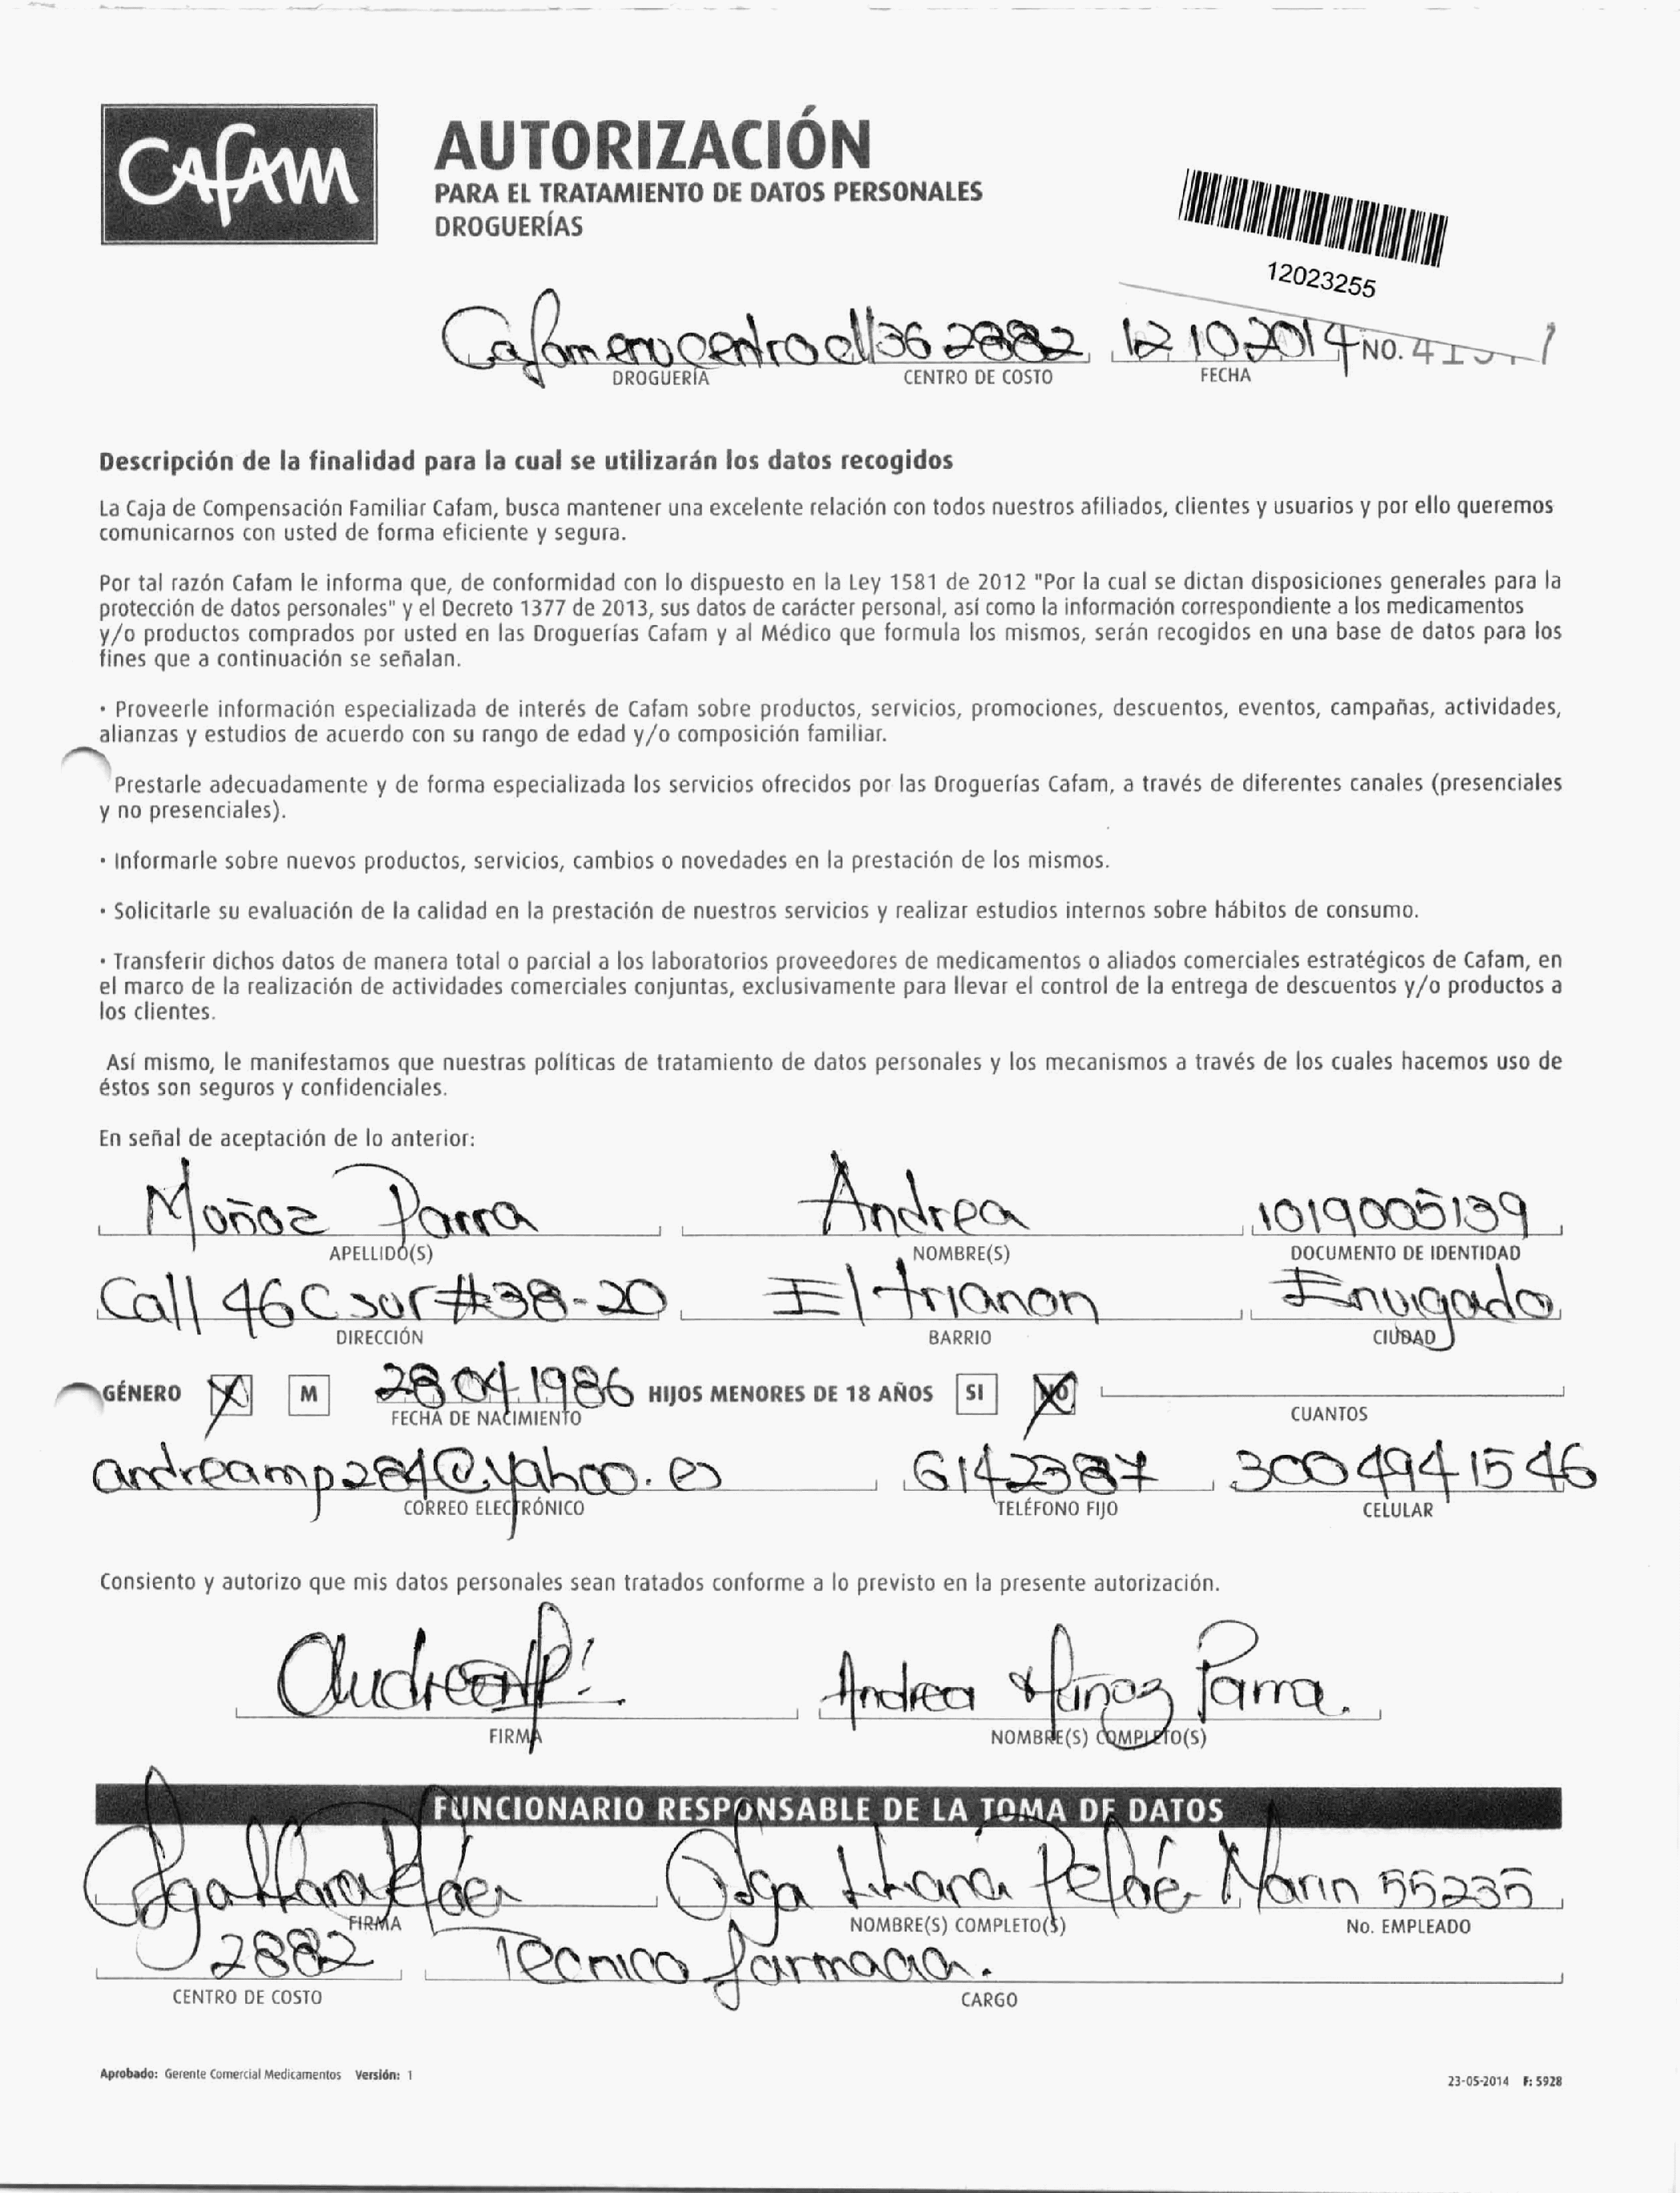 Cafam
AUTORIZACIÓN
PARA EL TRATAMIENTO DE DATOS PERSONALES
DROGUERÍAS
12023255
2882 12 10 2014 NO.
DROGUERÍA CENTRO DE COSTO FECHA
Descripción de la finalidad para la cual se utilizarán los datos recogidos
La Caja de Compensación Familiar Cafam, busca mantener una excelente relación con todos nuestros afiliados, clientes y usuarios y por ello queremos
comunicarnos con usted de forma eficiente y segura.
Por tal razón Cafam le informa que, de conformidad con lo dispuesto en la Ley 1581 de 2012 "Por la cual se dictan disposiciones generales para la
protección de datos personales" y el Decreto 1377 de 2013, sus datos de carácter personal, así como la información correspondiente a los medicamentos
y/o productos comprados por usted en las Droguerías Cafam y al Médico que formula los mismos, serán recogidos en una base de datos para los
fines que a continuación se señalan.
· Proveerle información especializada de interés de Cafam sobre productos, servicios, promociones, descuentos, eventos, campañas, actividades,
alianzas y estudios de acuerdo con su rango de edad y/o composición familiar.
Prestarle adecuadamente y de forma especializada los servicios ofrecidos por las Droguerías Cafam, a través de diferentes canales (presenciales
y no presenciales).
· Informarle sobre nuevos productos, servicios, cambios o novedades en la prestación de los mismos.
· Solicitarle su evaluación de la calidad en la prestación de nuestros servicios y realizar estudios internos sobre hábitos de consumo.
· Transferir dichos datos de manera total o parcial a los laboratorios proveedores de medicamentos o aliados comerciales estratégicos de Cafam, en
el marco de la realización de actividades comerciales conjuntas, exclusivamente para llevar el control de la entrega de descuentos y/o productos a
los clientes.
Así mismo, le manifestamos que nuestras políticas de tratamiento de datos personales y los mecanismos a través de los cuales hacemos uso de
éstos son seguros y confidenciales.
En señal de aceptación de lo anterior:
Muñoz Parra Andrea 1019005139
APELLIDO(S) NOMBRE(S) DOCUMENTO DE IDENTIDAD
Call 46C sur #38-20 El trianon Envigado
DIRECCIÓN BARRIO CIUDAD
GÉNERO X M 28 04 1986 HIJOS MENORES DE 18 AÑOS SI NO
FECHA DE NACIMIENTO CUANTOS
andreamp284@yahoo.es 6142387 3004941546
CORREO ELECTRÓNICO TELÉFONO FIJO CELULAR
Consiento y autorizo que mis datos personales sean tratados conforme a lo previsto en la presente autorización.
Andrea Muñoz Parra.
FIRMA NOMBRE(S) COMPLETO(S)
FUNCIONARIO RESPONSABLE DE LA TOMA DE DATOS
Olga Liliana Peláe Marin 55235
FIRMA NOMBRE(S) COMPLETO(S) No. EMPLEADO
2882 Tecnico farmacia.
CENTRO DE COSTO CARGO
Aprobado: Gerente Comercial Medicamentos Versión: 1
23-05-2014 F: 5928